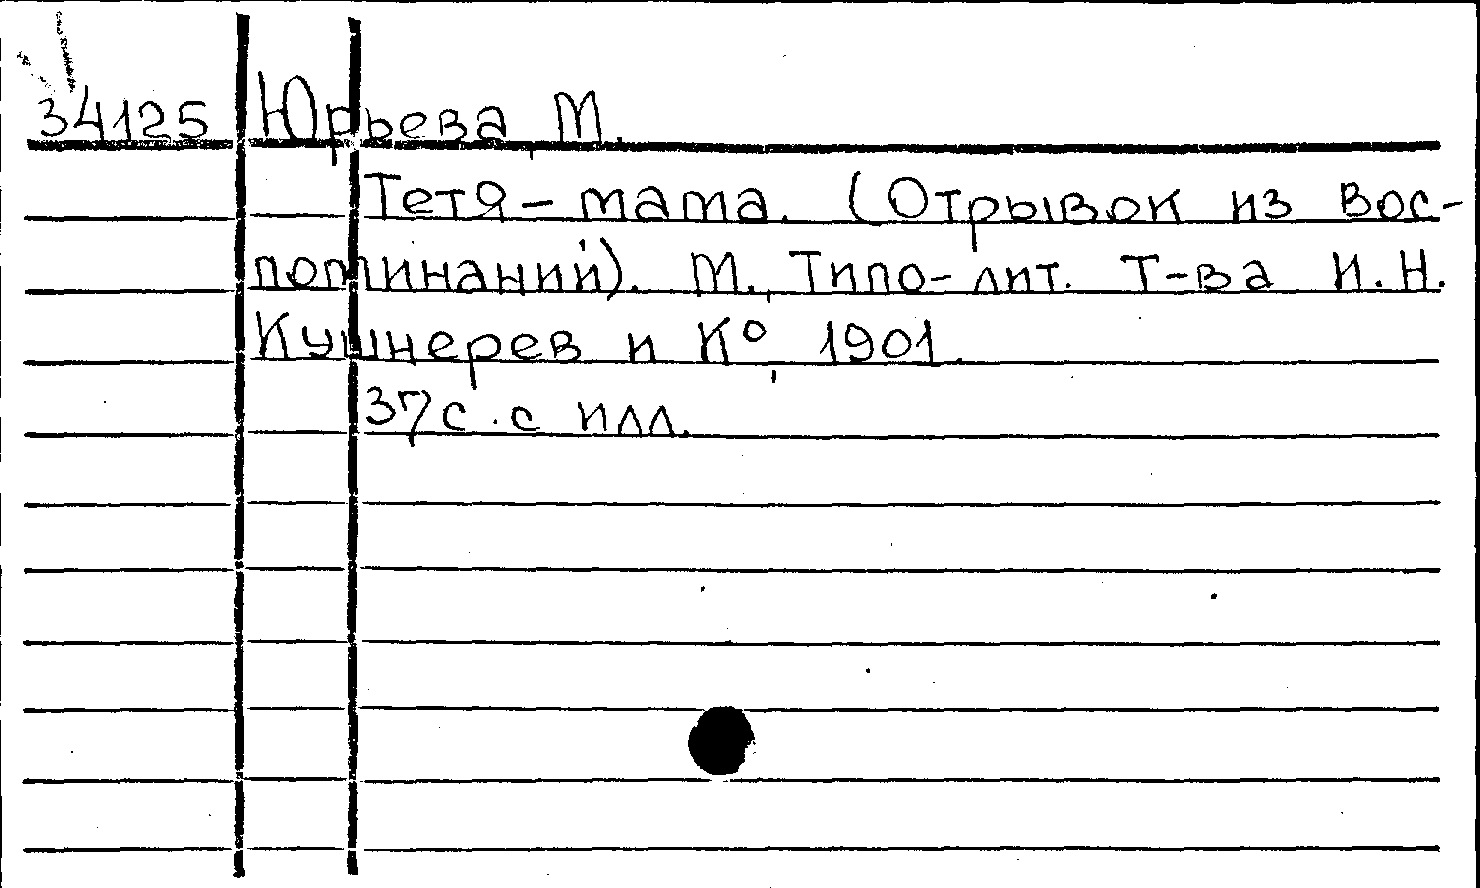 34125 Юрьева, М.
Тетя-мама. (Отрывок из вос-
поминаний). М., Типо-лит. Т-ва И.Н.
Кушнерев и К° 1901.
37 с. с илл.